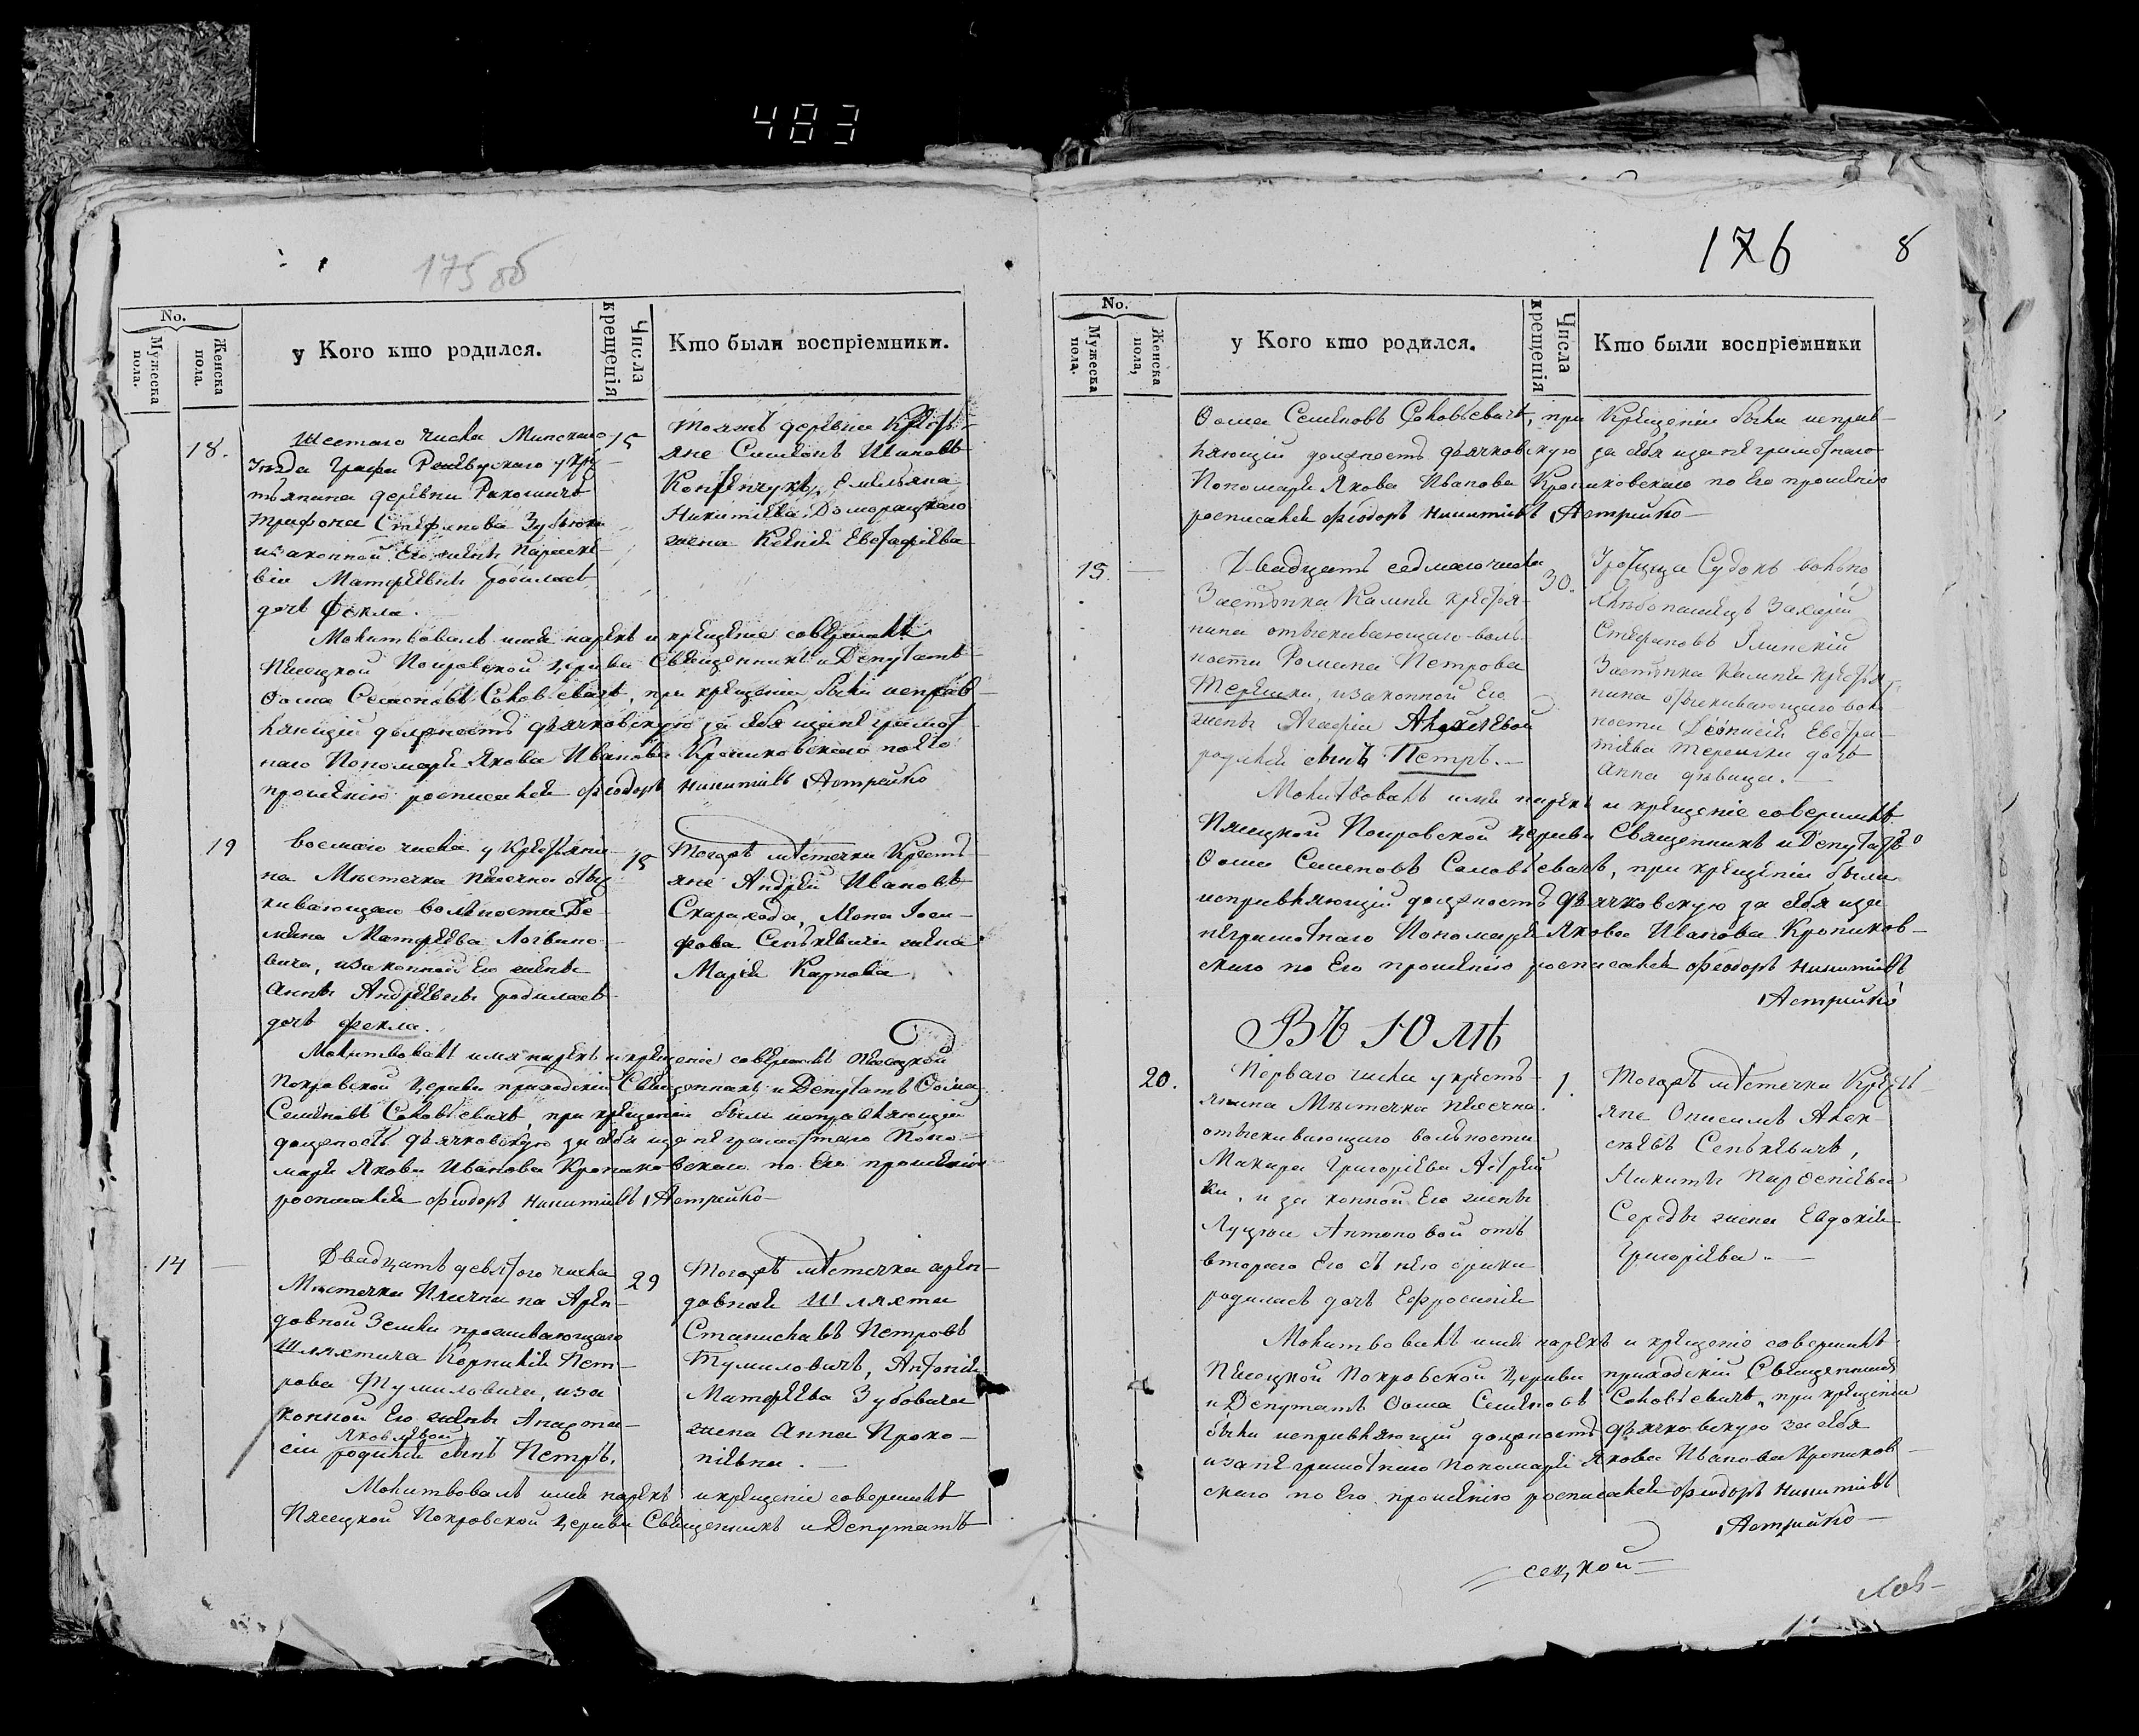 483
175 об
No.
Мужеска пола.
Женска пола.
у Кого кто родился.
Числа крещенія
Кто были воспріемники.
18.
Шестаго числа Минскаго
уѣзда Графа
деревни
Трифона Стефанова
изаконной Его жены Параске-
віи Матфеевны родилась
дочь Фекла.
15
Тояжъ деревни Кресть-
яне Симеонъ Ивановъ
Емельяна
Никитіева Доморацкаго
жена Ксенія
Молитвовалъ имя нарекъ и крещеніе совершилъ
Пясецкой Покровской церкви Священникъ и Депутатъ
Ѳома Семеновъ Соловьевичъ, при крещеніи были исправ-
ляющій должность дьячковскую за себя и за неграмот-
наго Пономаря Якова Иванова Кропиковскаго по Его
прошенію росписался Феодоръ Никитинъ Астрейко
19
Восмаго числа у Крестьяни-
на Мѣстечка Пясечна отыс-
кивающаго вольности Де-
мяна Матфеева Логвино-
вича, изаконной Его жены
Анны Андреевны родилась
дочь Фекла.
15
Тогожъ мѣстечка Кресть-
яне Андрей Ивановъ
Скарахода, Іоси-
фова жена
Марія Карпова
Молитвовалъ имя нарекъ и крещеніе совершилъ Пясецкой
Покровской Церкви приходскій Священникъ и Депутатъ Ѳома
Семеновъ Соловьевичъ, при крещеніи были исправляющій
должность дьячковскую за себя и за неграмотнаго Поно-
маря Якова Иванова Кропиковскаго по Его прошенію
росписался Феодоръ Никитинъ Астрейко
14
Двадцать девятого числа
Мѣстечка Пясечна на Арен-
довной Земли проживающаго
Шляхтича Корнилія Пет-
рова Тумиловича, иза
конной Его жены Анаста-
сіи Яковлевой родился сынъ Петръ.
29
Тогожъ мѣстечка арен-
довная Шляхта
Станиславъ Петровъ
Тумиловичъ, Антонія
Матфеева Зубовича
жена Анна Проко-
піевна.
Молитвовалъ имя нарекъ и крещеніе совершилъ
Пясецкой Покровской церкви Священникъ и Депутатъ
176
8
No.
Мужеска пола.
Женска пола,
у Кого кто родился.
Числа крещенія
Кто были воспріемники
Ѳома Семеновъ Соловьевичъ, при Крещеніи были исправ-
ляющій должность дьячковскую за себя и за неграмотнаго
Пономаря Якова Иванова Кропиковскаго по Его прошенію
росписался Феодоръ Никитинъ Астрейко
15.
Двадцать седмаго числа
Застѣнка Камня крестья-
нина отыскивающаго воль-
ности Романа Петрова
Терешки, изаконной Его
жены Агафіи
родился сынъ Петръ.
30.
вольно
хлѣбопашецъ Захарій
Стефановъ
Застѣнка Камня крестья-
нина отыскивающаго воль-
ности
Терешки дочь
Анна дѣвица.
Молитвовалъ имя нарекъ и крещеніе совершилъ
Пясецкой Покровской церкви Священникъ и Депутатъ
Ѳома Семеновъ Соловьевичъ, при крещеніи были
исправляющій должность дьячковскую за себя и за
неграмотнаго Пономаря Якова Иванова Кропиков-
скаго по Его прошенію росписался Феодоръ Никитинъ
Астрейко
Въ Юлѣ
20.
Перваго числа у кресть-
янина Мѣстечка Пясечна
отыскивающаго вольности
Макара Григоріева Астрей
ки, и за конной Его жены
Луціи Антоновой отъ
втораго Его съ нею брака
родилась дочь Ефросинія
1.
Тогожъ мѣстечка Кресть
яне Онисимъ Алек-
сѣевъ
Никиты Парѳеніева
Середы жена Евдокія
Григоріева.
Молитвовалъ имя нарекъ и крещеніе совершилъ
Пясецкой Покровской Церкви приходскій Священникъ
и Депутатъ Ѳома Семеновъ Соловьевичъ, при крещеніи
были исправляющій должность дьячковскую за себя
и за неграмотнаго Пономаря Якова Иванова Кропиков-
скаго по Его прошенію росписался Феодоръ Никитинъ
Астрейко
сецкой